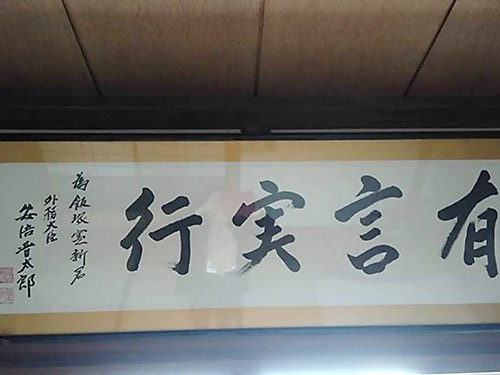 有言実行
為飯塚憲新君
外務大臣
安倍晋太郎